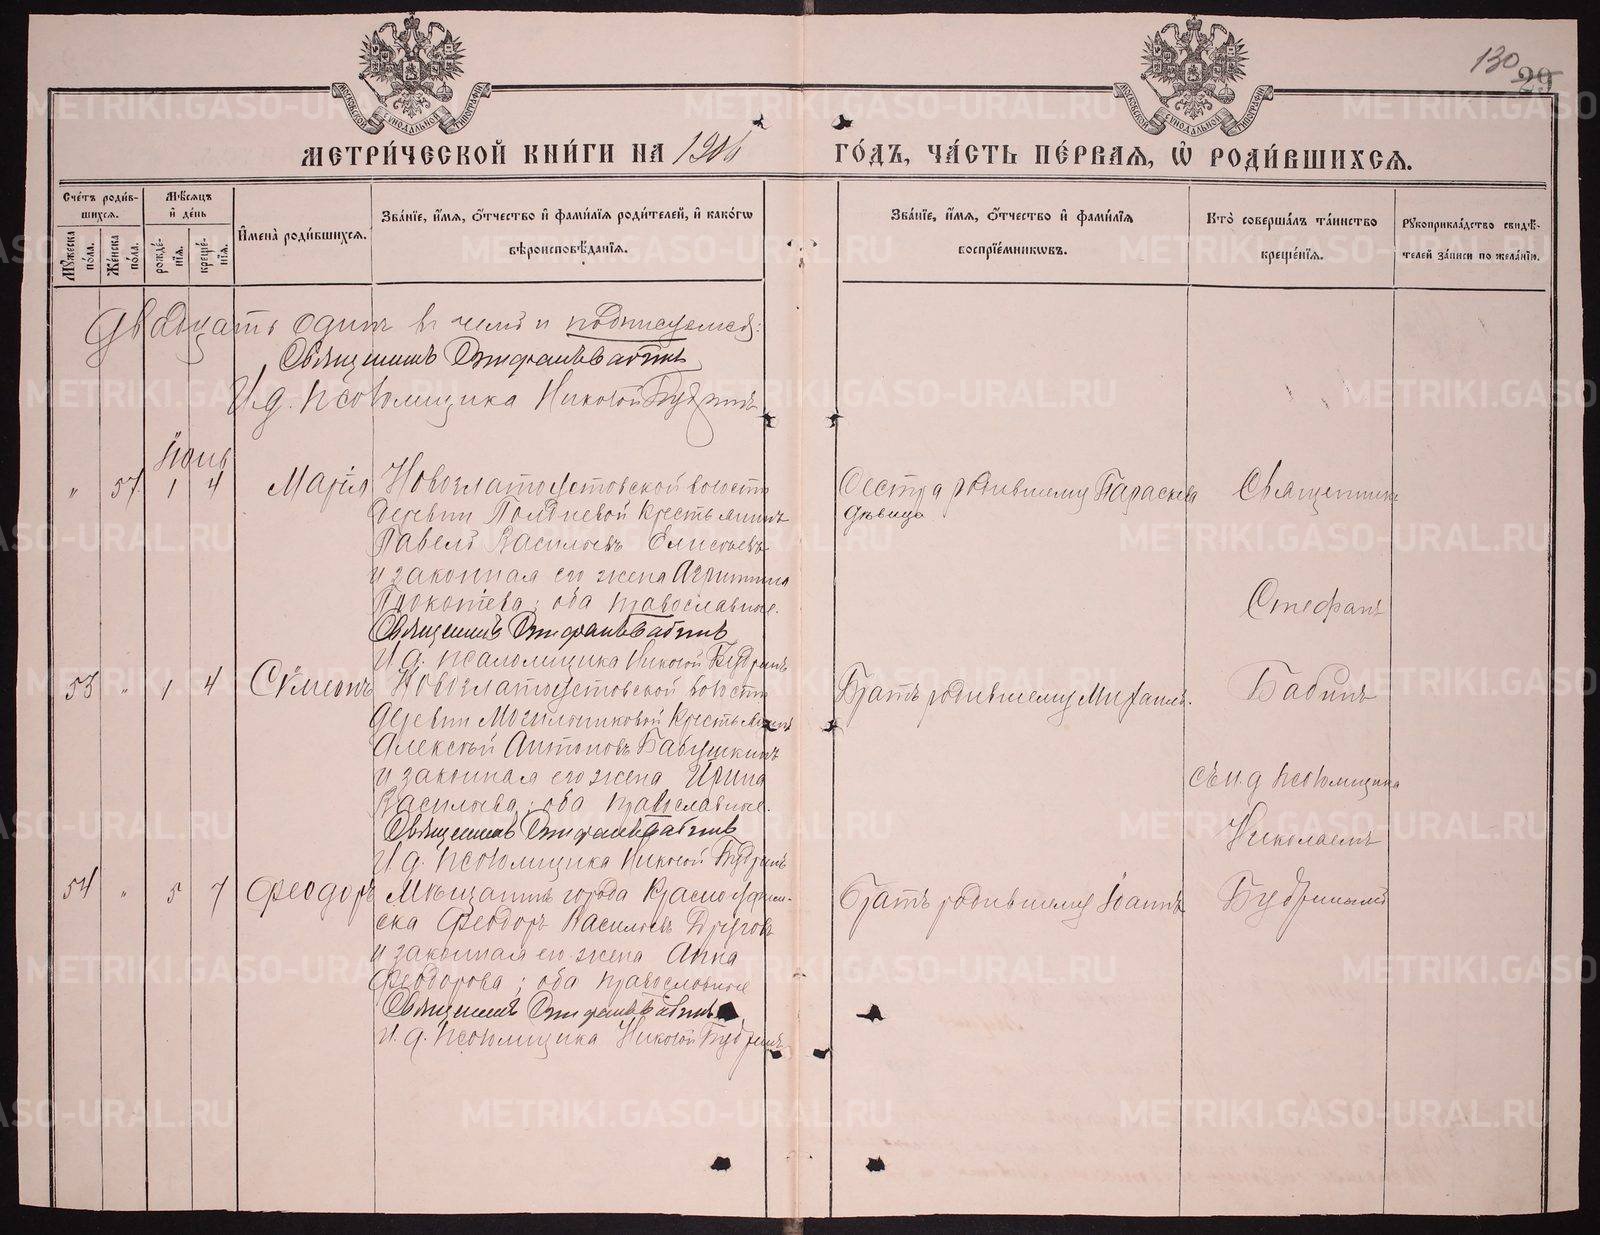 130
29
МОСКОВСКОЙ СѴНОДАЛЬНОЙ ТИПОГРАФІИ
МОСКОВСКОЙ СѴНОДАЛЬНОЙ ТИПОГРАФІИ
МЕТРИ́ЧЕСКОЙ КНИ́ГИ НА 1906 ГО́ДЪ, ЧА́СТЬ ПЕ́РВАЯ, Ѡ РОДИ́ВШИХСЯ.
Сче́тъ роди́вшихся.
Мужеска по́ла.
Же́нска по́ла.
Мѣ́сяцъ и҆ де́нь
рожде́нїя.
креще́нїя.
И҆мена̀ роди́вшихся.
Зва́нїе, и҆́мя, ѻ҆́тчество и҆ фами́лїя роди́телей, и҆ како́гѡ вѣроисповѣ́данїя.
Зва́нїе, и҆́мя, ѻ҆́тчество и҆ фами́лїя воспрїе́мникѡвъ.
Кто̀ соверша́лъ та́инство креще́нїя.
Рукоприкла́дство свидѣ́телей за́писи по жела́нїю.
Двадцать одинъ въ чемъ и подписуемся:
Священникъ Стефанъ Бабинъ
И.д. псаломщика Николай Будринъ
Іюнь
" 57 1 4 Марія Новозлатоустовской волости
деревни Полдневой крестьянинъ
Павелъ Васильевъ Елисѣевъ
и законная его жена Агриппина
Прокопіева; оба православные.
Священникъ Стефанъ Бабинъ
И.д. псаломщика Николай Будринъ
Сестра родившему Параскева
дѣвица
Священникъ
Стефанъ
Бабинъ
съ и.д псаломщика
Николаемъ
Будринымъ
53 " 1 4 Сѵмеонъ Новозлатоустовской волости
деревни Могильниковой крестьянинъ
Алексѣй Антоновъ Бабушкинъ
и законная его жена Ирина
Васильева; оба православные.
Священникъ Стефанъ Бабинъ
И д. псаломщика Николай Будринъ
Братъ родившему Михаилъ.
54 " 5 7 Феодоръ Мѣщанинъ города Красноуфим-
ска Феодоръ Васильевъ Друговъ
и законная его жена Анна
Феодорова; оба православные
Священникъ Стефанъ Бабинъ
И. д. псаломщика Николай Будринъ
Братъ родившему Іоаннъ
METRIKI.GASO-URAL.RU